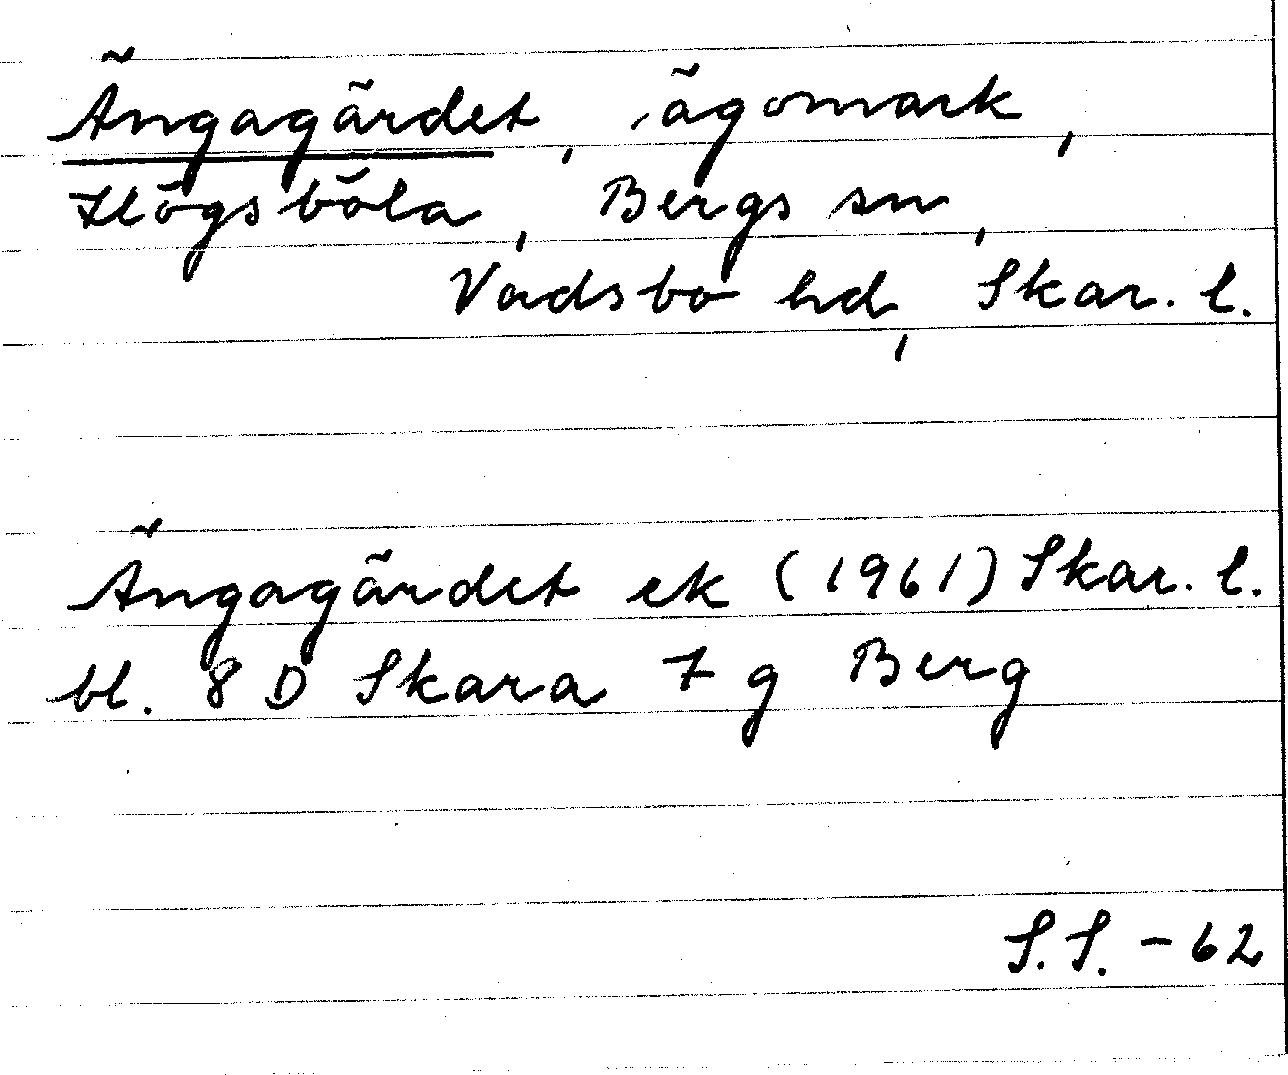 Ängagärdet, ägomark,
Högsböla, Bergs sn,
Vadsbo hd, Skar. l.
Ängagärdet ek (1961) Skar. l.
bl. 8 D Skara 7 g Berg
S.S. - 62